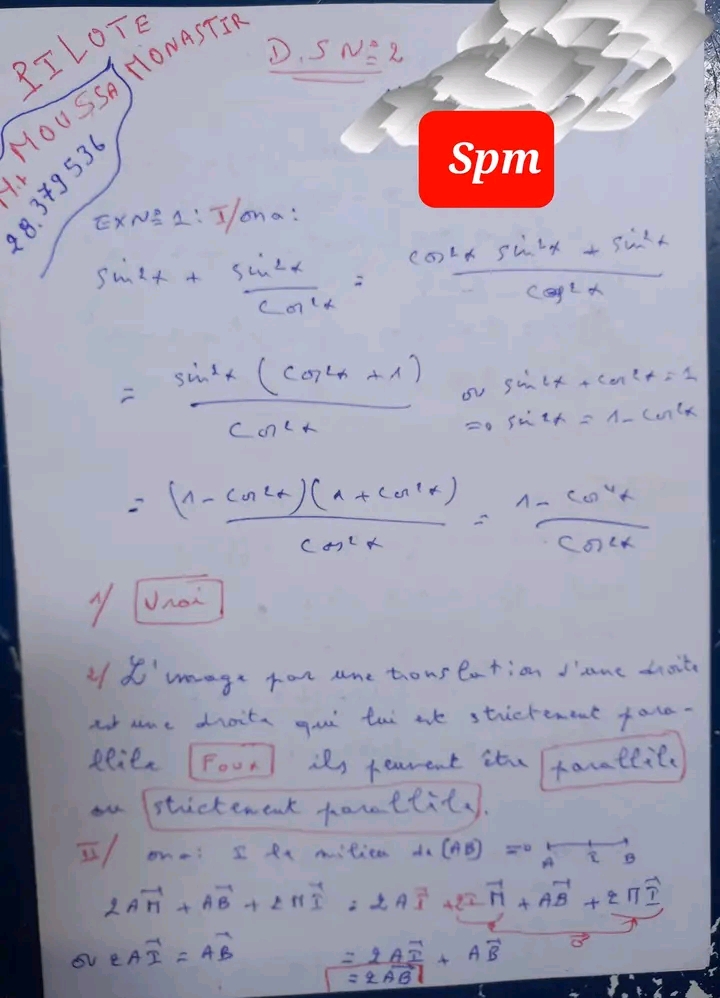 PILOTE
MONASTIR
Mr MOUSSA
28.379536
D.S Nº 2
Spm
EX Nº 1: I/ on a:
sin²x + sin²x / cos²x = (cos²x sin²x + sin²x) / cos²x
= sin²x (cos²x + 1) / cos²x or sin²x + cos²x = 1
=> sin²x = 1 - cos²x
= (1 - cos²x)(1 + cos²x) / cos²x = (1 - cos⁴x) / cos²x
1/ Vrai
2/ L'image par une translation d'une droite
est une droite qui lui est strictement para-
llèle Faux ils peuvent être parallèle
ou strictement parallèle.
II/ on a: I le milieu de (AB) => A I B
2AM⃗ + AB⃗ + 2MI⃗ = 2AI⃗ + 2IM⃗ + AB⃗ + 2MI⃗
0⃗
or 2AI⃗ = AB⃗ = 2AI⃗ + AB⃗
= 2AB⃗